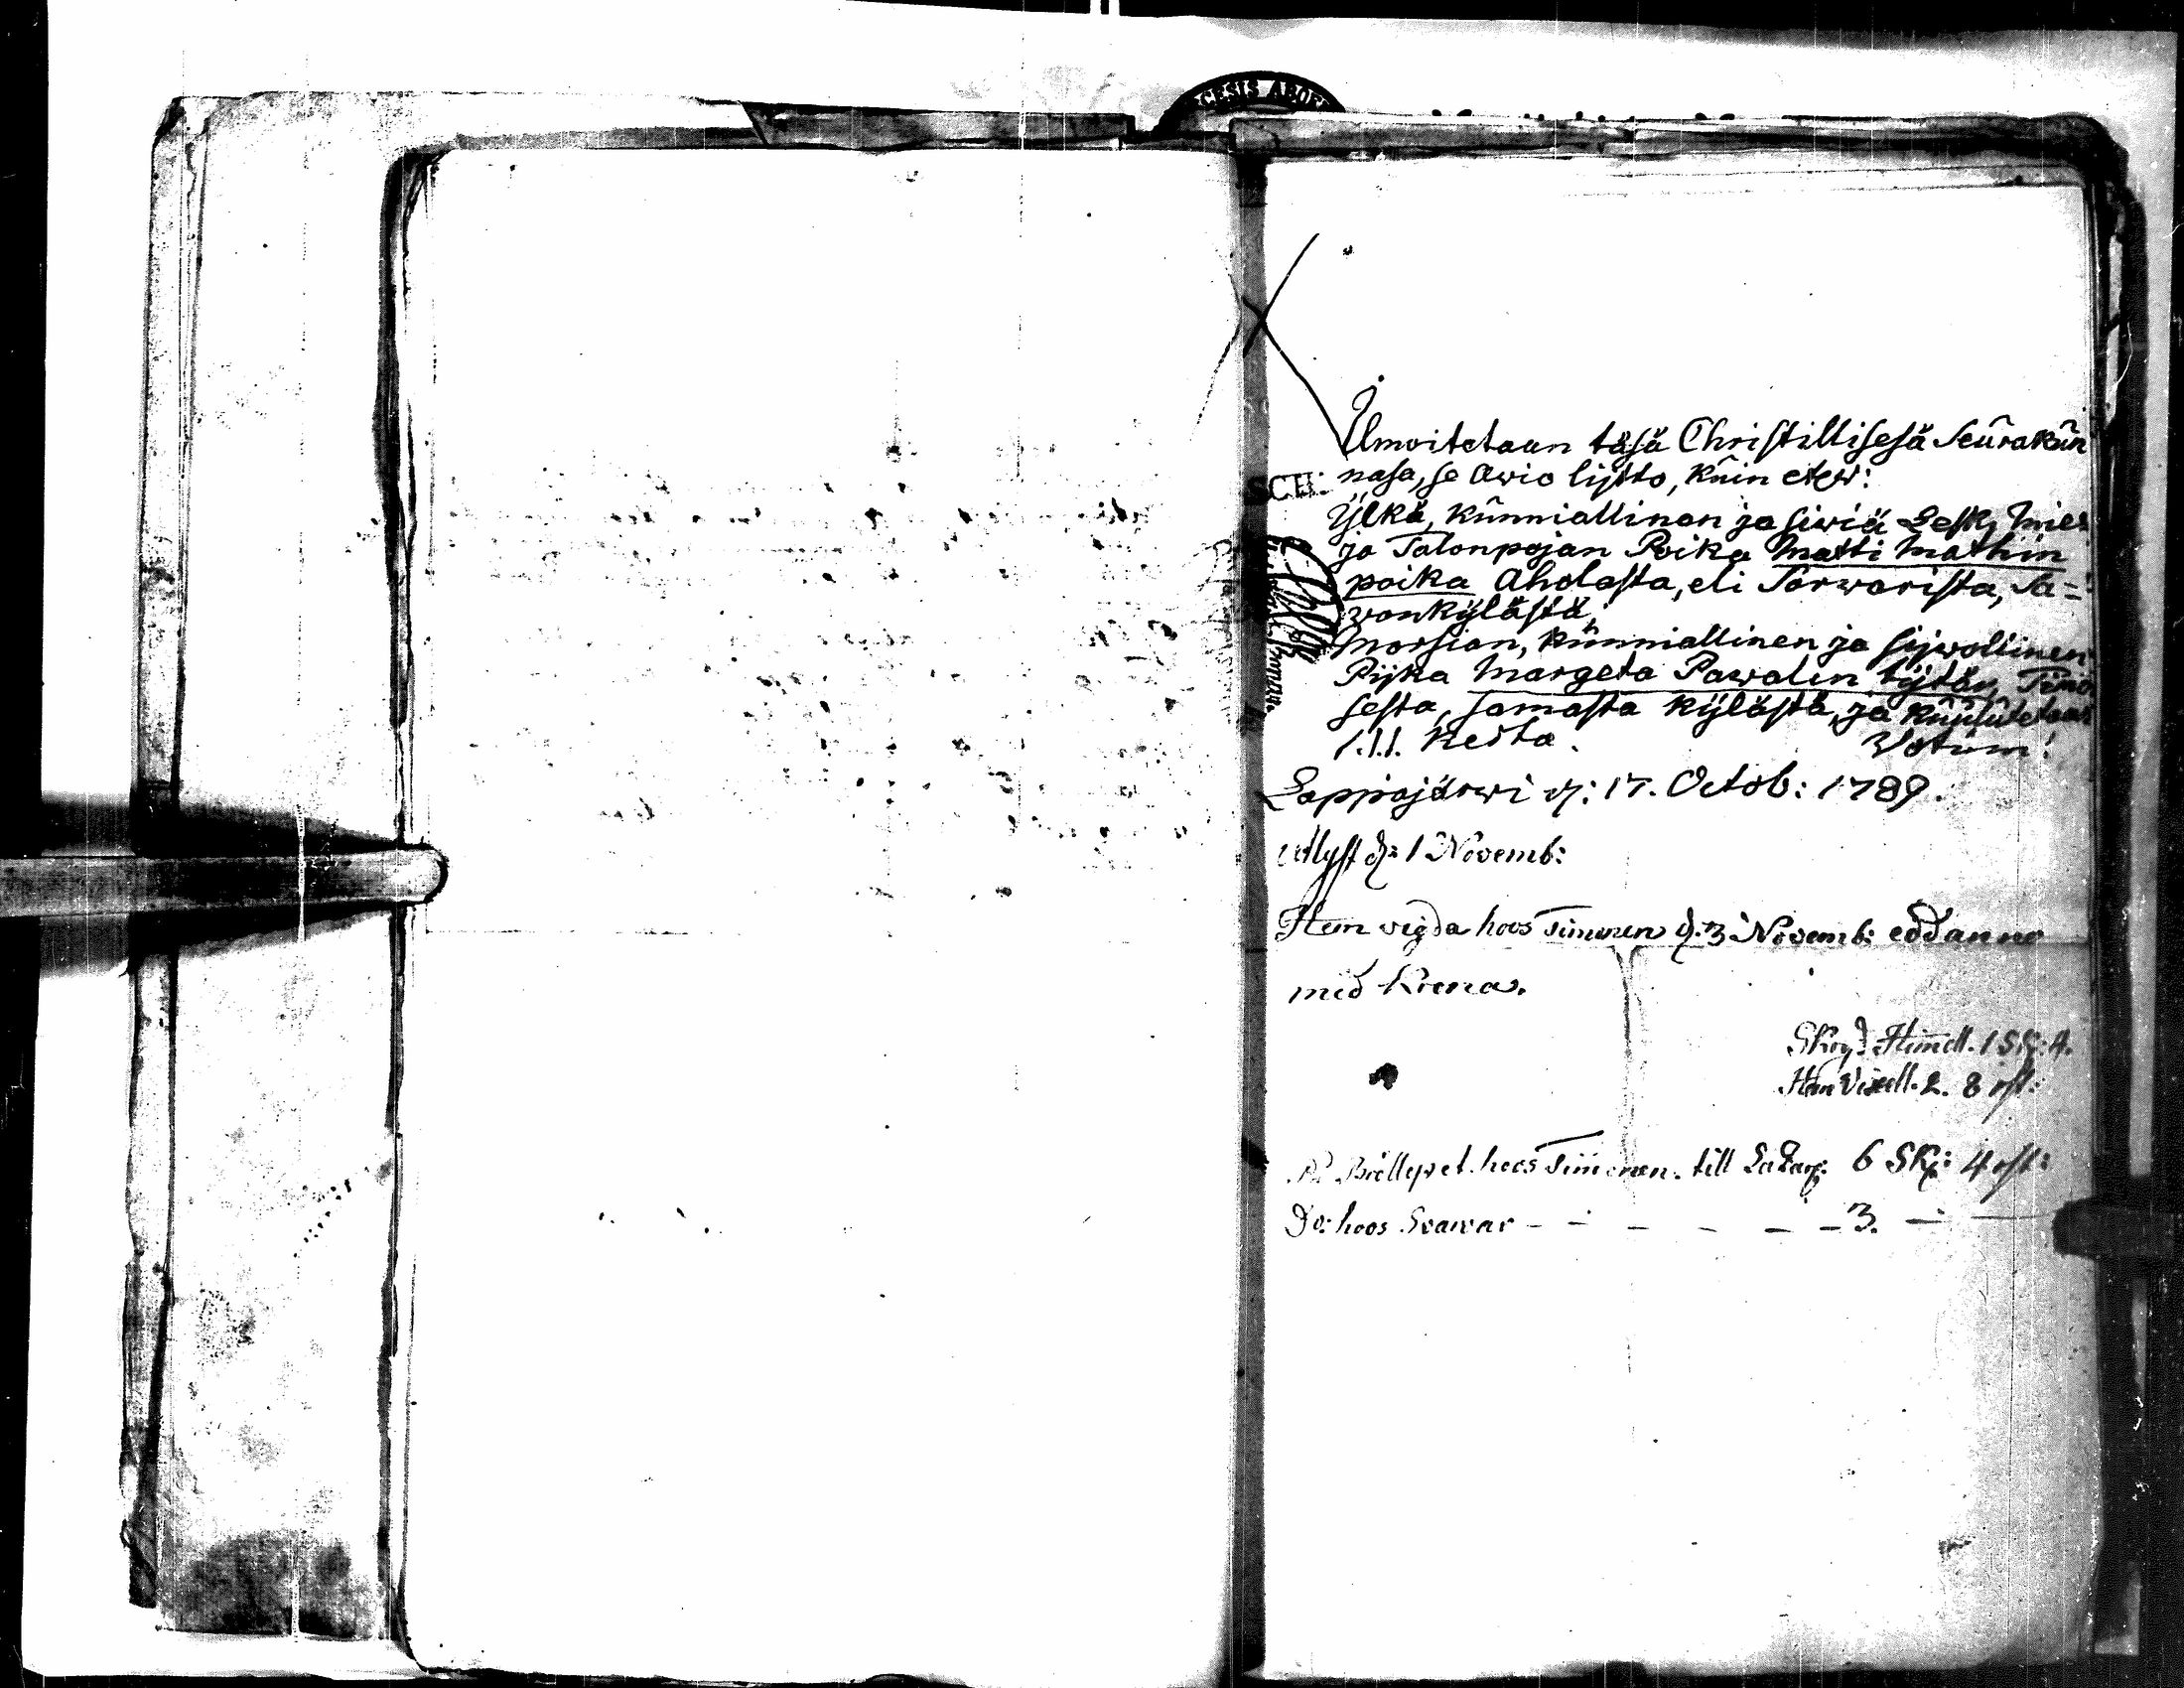 CESIS ABOE
Ilmoitetaan täsä Christillisesä Seürakün
nasa, se Awio lijtto, küin etew:
SCH.
Ylkä, künniallinen ja siwiä Lesk, mies
ja Talonpojan Poika Matti Mathin
poika Aholasta, eli Sarwarista, Sa=
wonkylästä;
Morsian, künniallinen ja sijwollinen
Pijka Margeta Pawalin tytär, Timo
sesta, samasta kylästä, ja küulütetaan
1.1.1. kerta. Votum!
Lappajärwi d: 17. Octob: 1789.
utlyst d: 1 Novemb:
Item vigda hoos Timonen d. 3 Novemb: eod anno
med Krona.
2. 8 rst:
Bröllopet hoos Timonen till 6 Sk: 4 rst:
Do: hoos Sawar - - - - - - 3. —